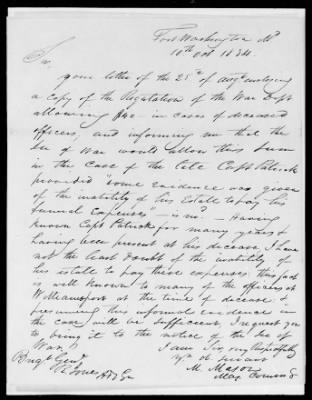 Fort Washington Md
10th Oct 1834
Sir,
your letter of the 25th of Augt enclosing
a copy of the Regulation of the War Dept
allowing in cases of deceased
officers, and informing me that the
Sec of War would allow this sum
in the case of the late Capt Patrick
provided "some evidence was given
of the inability of his Estate to pay his
funeral expenses" — is recd — Having
known Capt Patrick for many years &
having been present at his decease I have
not the least doubt of the inability of
his estate to pay these expenses this fact
is well known to many of the officers at
Williamsport at the time of decease &
presuming this informal evidence in
the case will be sufficient, I request you
to bring it to the notice of the Sec of
War. I am Sir, very Respectfully
Yr Ob Servant
M. Mason
Maj Comdg
Brigr Genl
R Jones Adj Gen